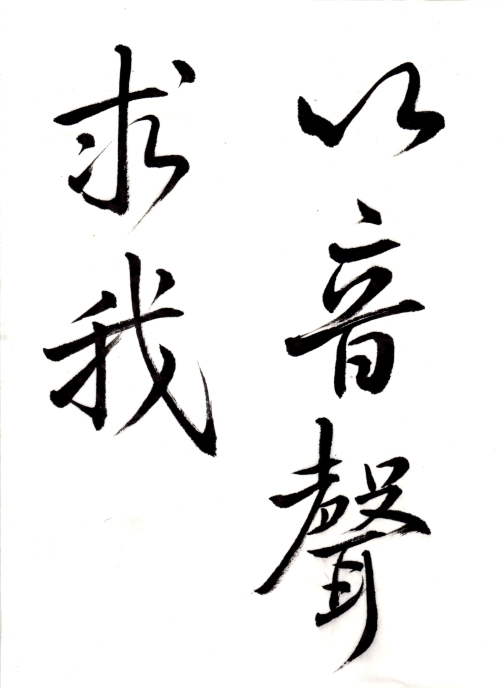 以音聲
求我